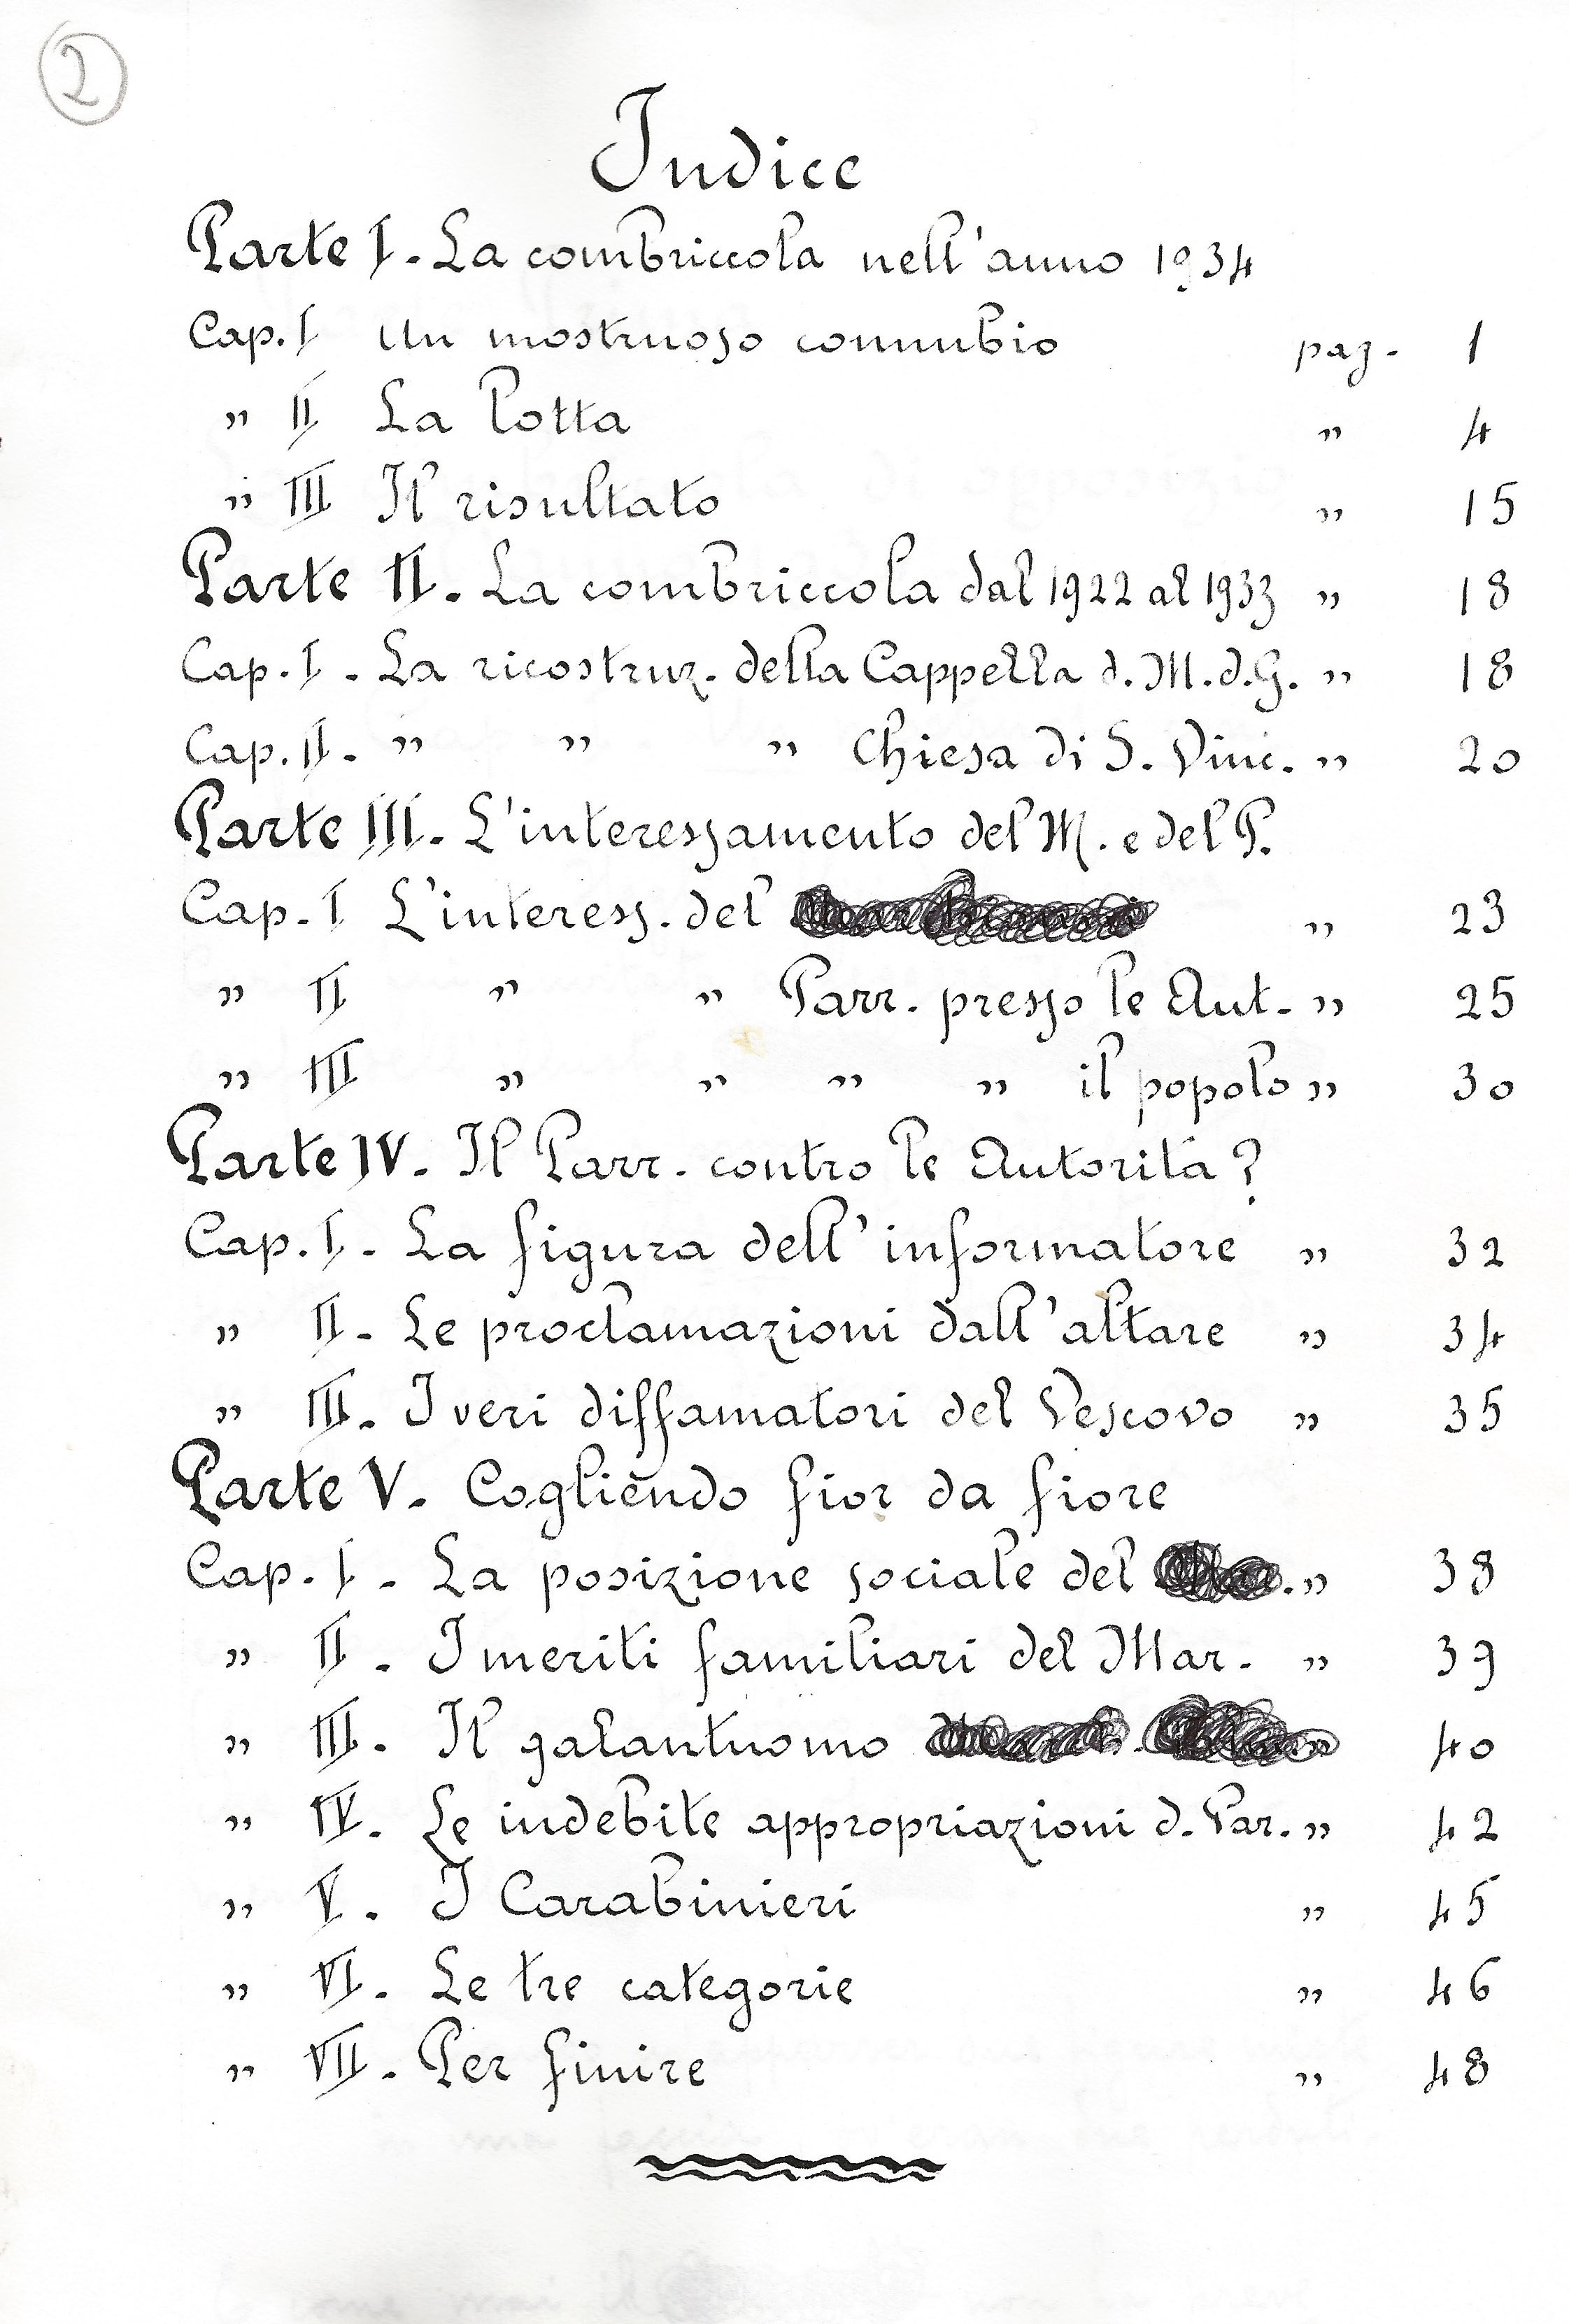 2
Indice
Parte I. La combriccola nell'anno 1934
Cap. I Un mostruoso connubio pag. 1
" II La lotta " 4
" III Il risultato " 15
Parte II. La combriccola dal 1922 al 1933 " 18
Cap. I. La ricostruz. della Cappella d. M. d. G. " 18
Cap. II. " " " Chiesa di S. Vinc. " 20
Parte III. L'interessamento del M. e del P.
Cap. I L'interess. del " 23
" II " " Parr. presso le Aut. " 25
" III " " " " il popolo " 30
Parte IV. Il Parr. contro le Autorità?
Cap. I. La figura dell'informatore " 32
" II. Le proclamazioni dall'altare " 34
" III. I veri diffamatori del Vescovo " 35
Parte V. Cogliendo fior da fiore
Cap. I. La posizione sociale del . " 38
" II. I meriti familiari del Mar. " 39
" III. Il galantuomo " 40
" IV. Le indebite appropriazioni d. Par. " 42
" V. I Carabinieri " 45
" VI. Le tre categorie " 46
" VII. Per finire " 48